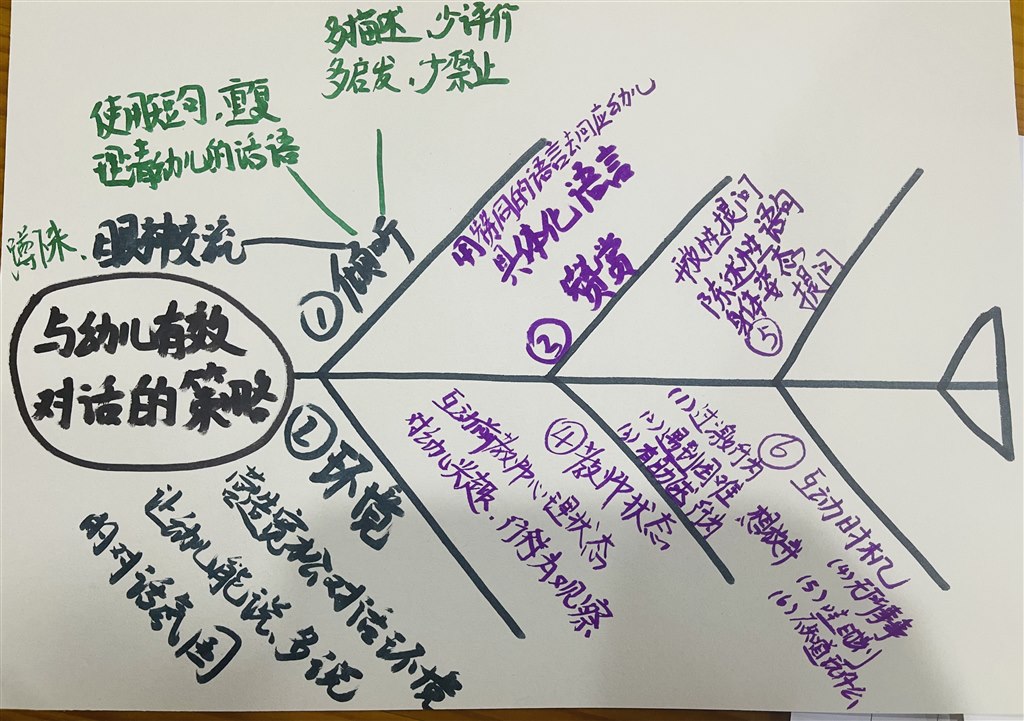 与幼儿有效
对话的策略
①倾听
多描述、少评价
多启发、少禁止
使用短句,重复
着幼儿的话语
蹲下来、眼神交流
②环境
营造宽松对话环境
让幼儿能说、多说
的对话氛围
③赞赏
具体化语言
用不同的语言去回应幼儿
④教师状态
互动前教师心理状态
对幼儿兴趣、行为观察
⑤提问
开放性提问
陈述性语句
身体姿态
⑥互动时机
(1)过激行为
(2)遇到困难
(3)有
行为
想
(4)无所事事
(5)
(6)不知道玩什么